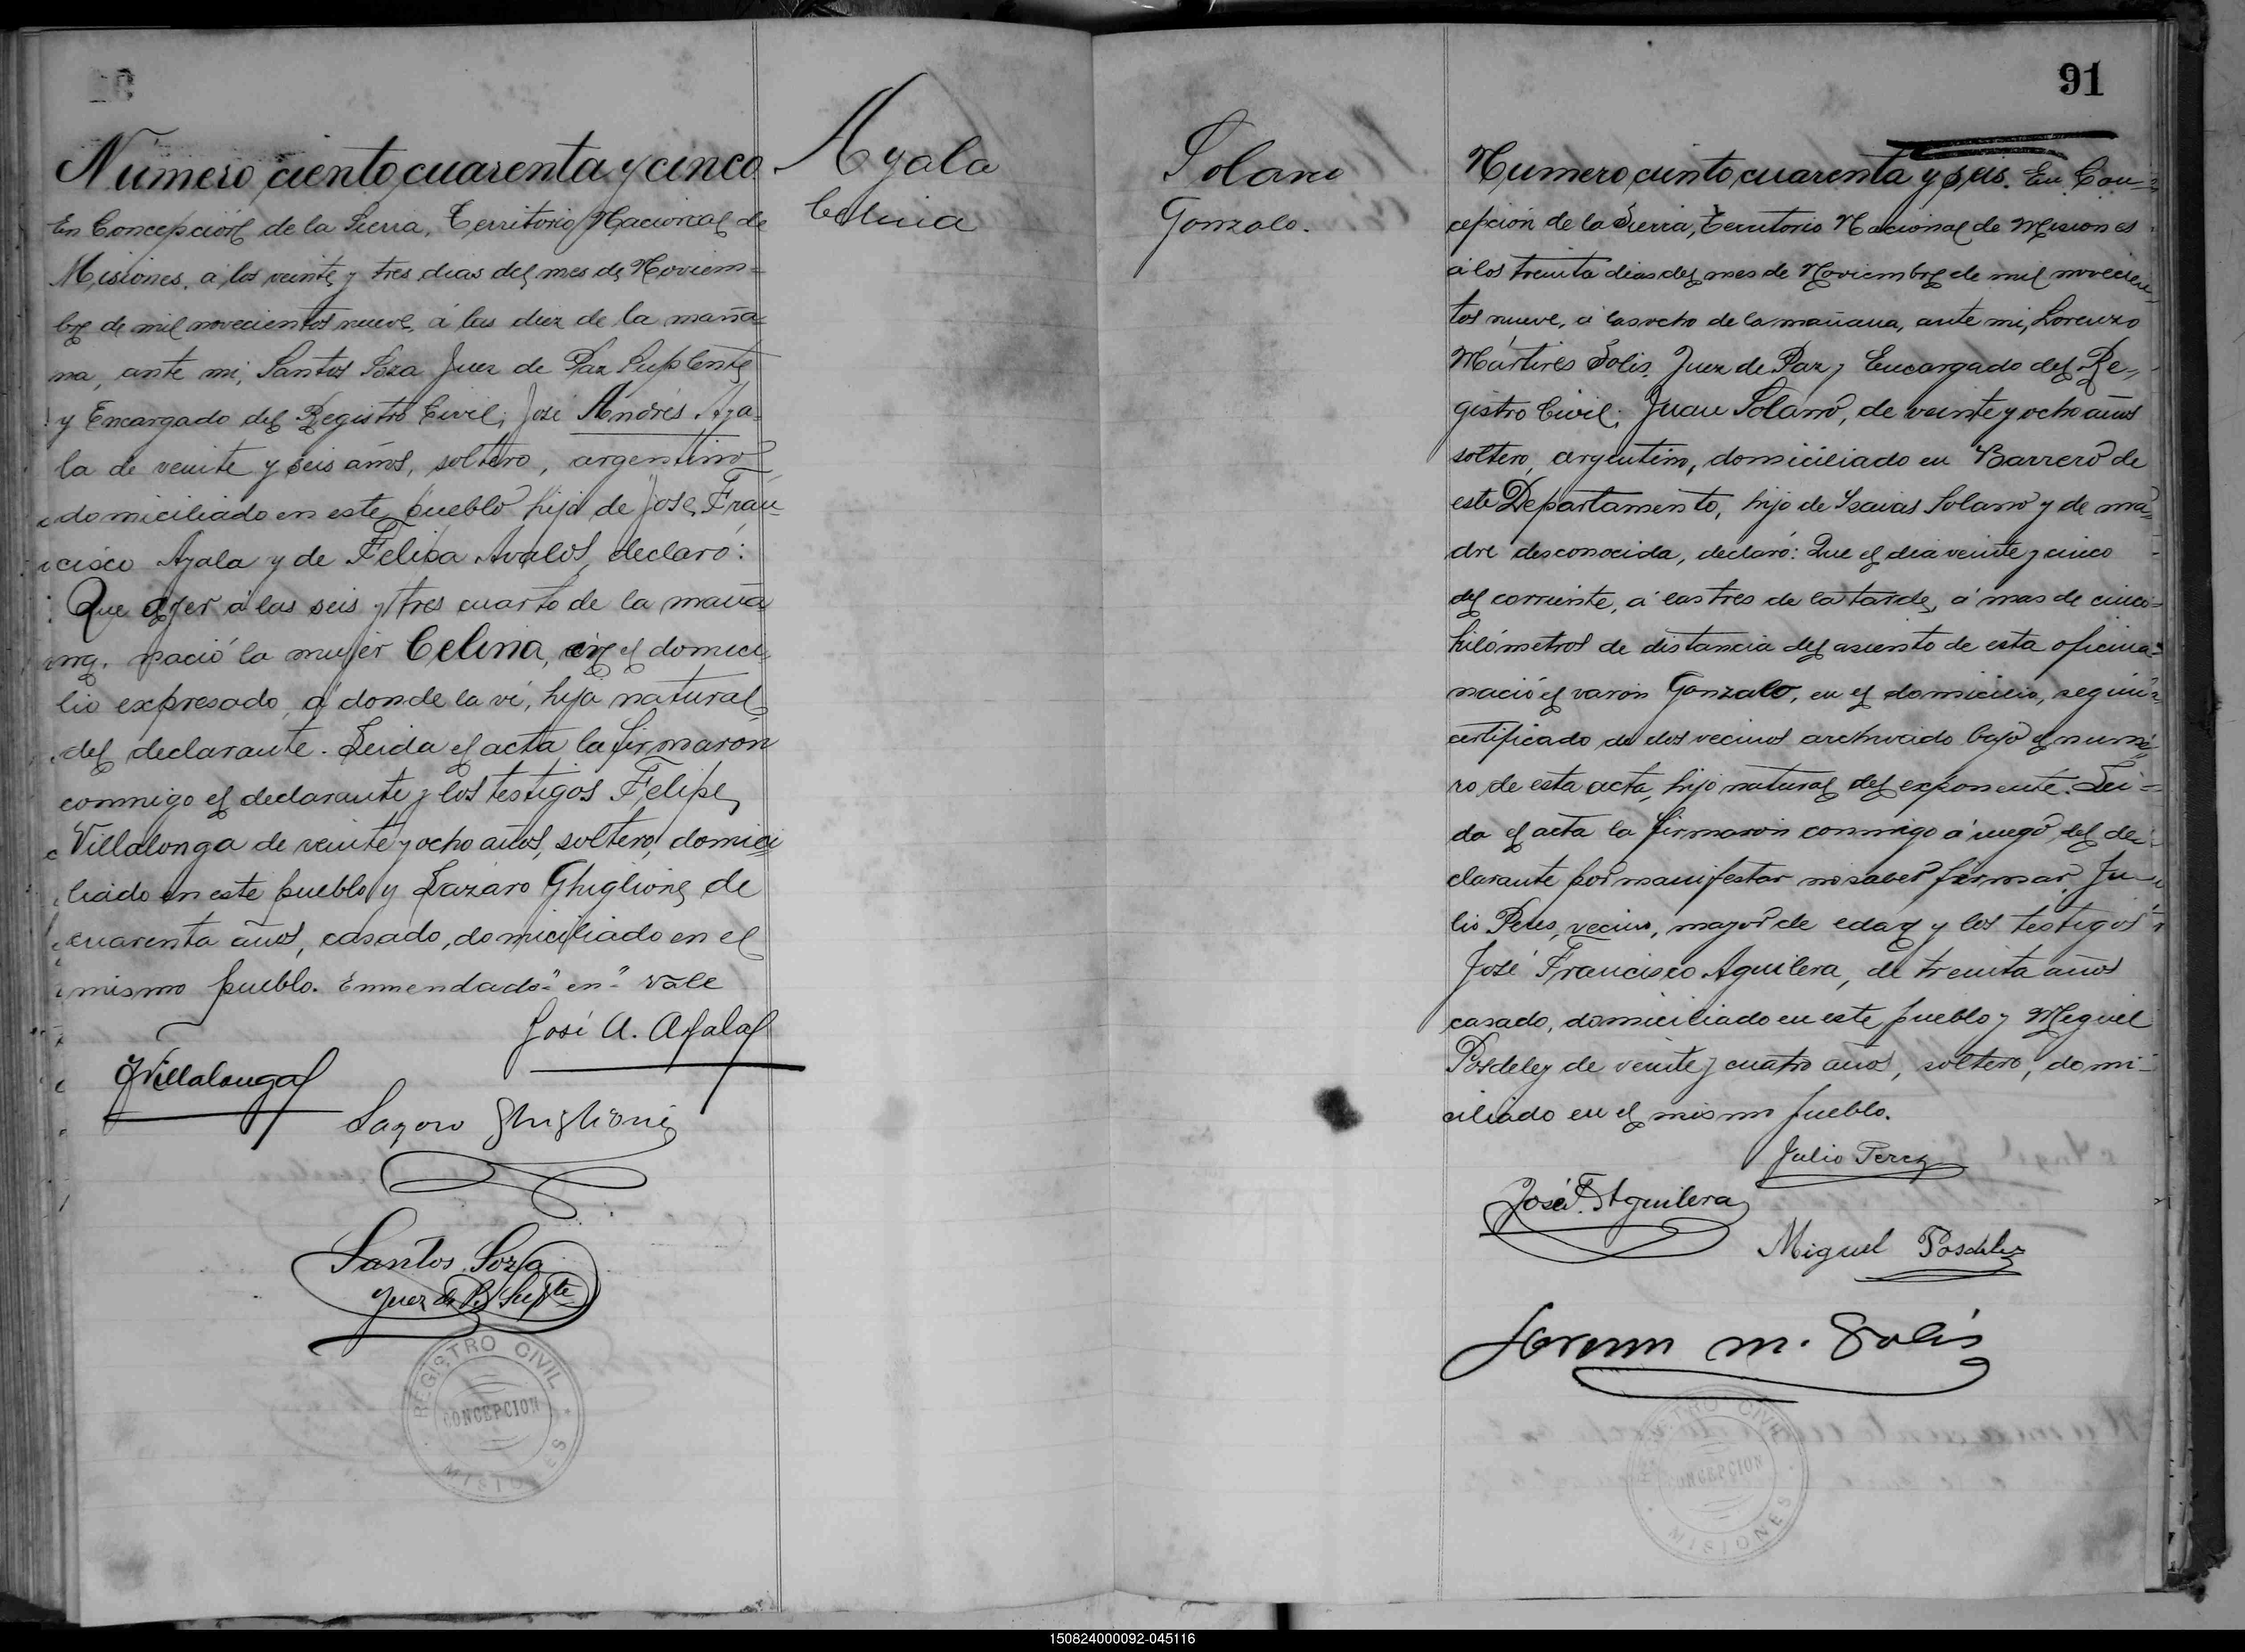 Número ciento cuarenta y cinco
En Concepción de la Sierra, Territorio Nacional de
Misiones, á los veinte y tres dias del mes de Noviem=
bre de mil novecientos nueve, á las diez de la maña=
na, ante mi, Santos Soza Juez de Paz Suplente
y Encargado del Registro Civil, José Andrés Aya=
la de veinte y seis años, soltero, argentino
domiciliado en este pueblo hijo de José Fran=
cisco Ayala y de Felisa Avalos, declaró:
Que ayer á las seis y tres cuarto de la maña
na. nació la mujer Celina, en el domici
lio expresado, á donde la ví, hija natural
del declarante. Leida el acta la firmaron
conmigo el declarante y los testigos Felipe
Villalonga de veinte y ocho años, soltero, domici
liado en este pueblo y Lázaro Ghiglione de
cuarenta años, casado, domiciliado en el
mismo pueblo. Enmendado "en" vale
José A. Ayala
FVillalonga
Lazaro Ghiglione
Santos Soza
Juez de Paz Supte
REGISTRO CIVIL
CONCEPCION
MISIONES
Ayala
Celina
Solano
Gonzalo.
91
Numero ciento cuarenta y seis. En Con=
cepción de la Sierra, Territorio Nacional de Misiones
á los treinta dias del mes de Noviembre de mil novecien=
tos nueve, á las ocho de la mañana, ante mi, Lorenzo
Mártires Solis, Juez de Paz y Encargado del Re=
gistro Civil; Juan Solano, de veinte y ocho años
soltero, argentino, domiciliado en Barrero de
este Departamento, hijo de Isaias Solano y de ma=
dre desconocida, declaró: Que el dia veinte y cinco
del corriente, á las tres de la tarde, á mas de cinco
kilómetros de distancia del asiento de esta oficina
nació el varón Gonzalo, en el domicilio, según
certificado de dos vecinos archivado bajo el núme=
ro de esta acta, hijo natural del exponente. Lei=
da el acta la firmaron conmigo á ruego del de=
clarante por manifestar no saber firmar, Ju=
lio Peres, vecino, mayor de edad y los testigos
José Francisco Aguilera, de treinta años
casado, domiciliado en este pueblo y Miguel
Posdeley de veinte y cuatro años, soltero, domi=
ciliado en el mismo pueblo.
Julio Perez
José F. Aguilera
Miguel Posdeley
Lorenzo M. Solis
REGISTRO CIVIL
CONCEPCION
MISIONES
150824000092-045116